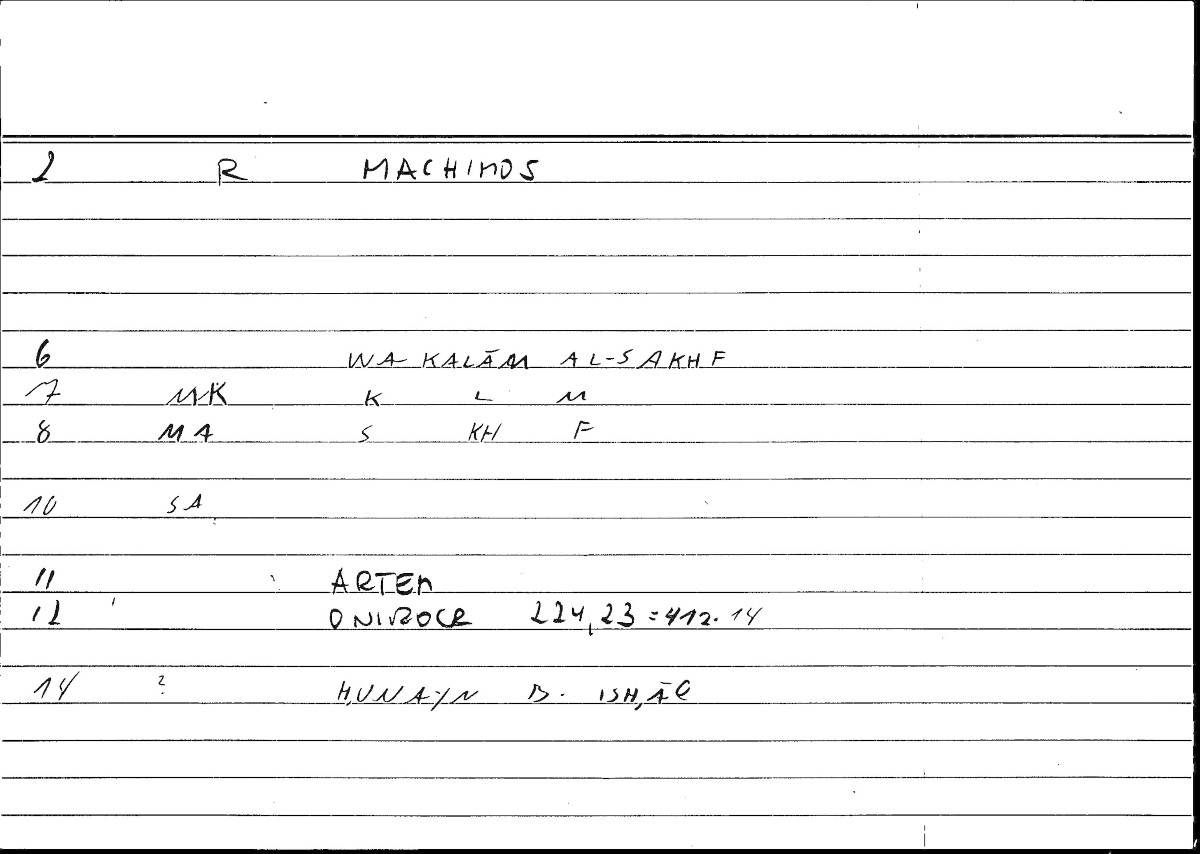 2 R MACHIMOS
6 WA KALĀM AL-SAKHF
7 MK K L M
8 MA S KH F
10 SA
11 ARTEM
12 ONIROCR 224,23 = 412.14
14 ? ḤUNAYN B. ISḤĀQ